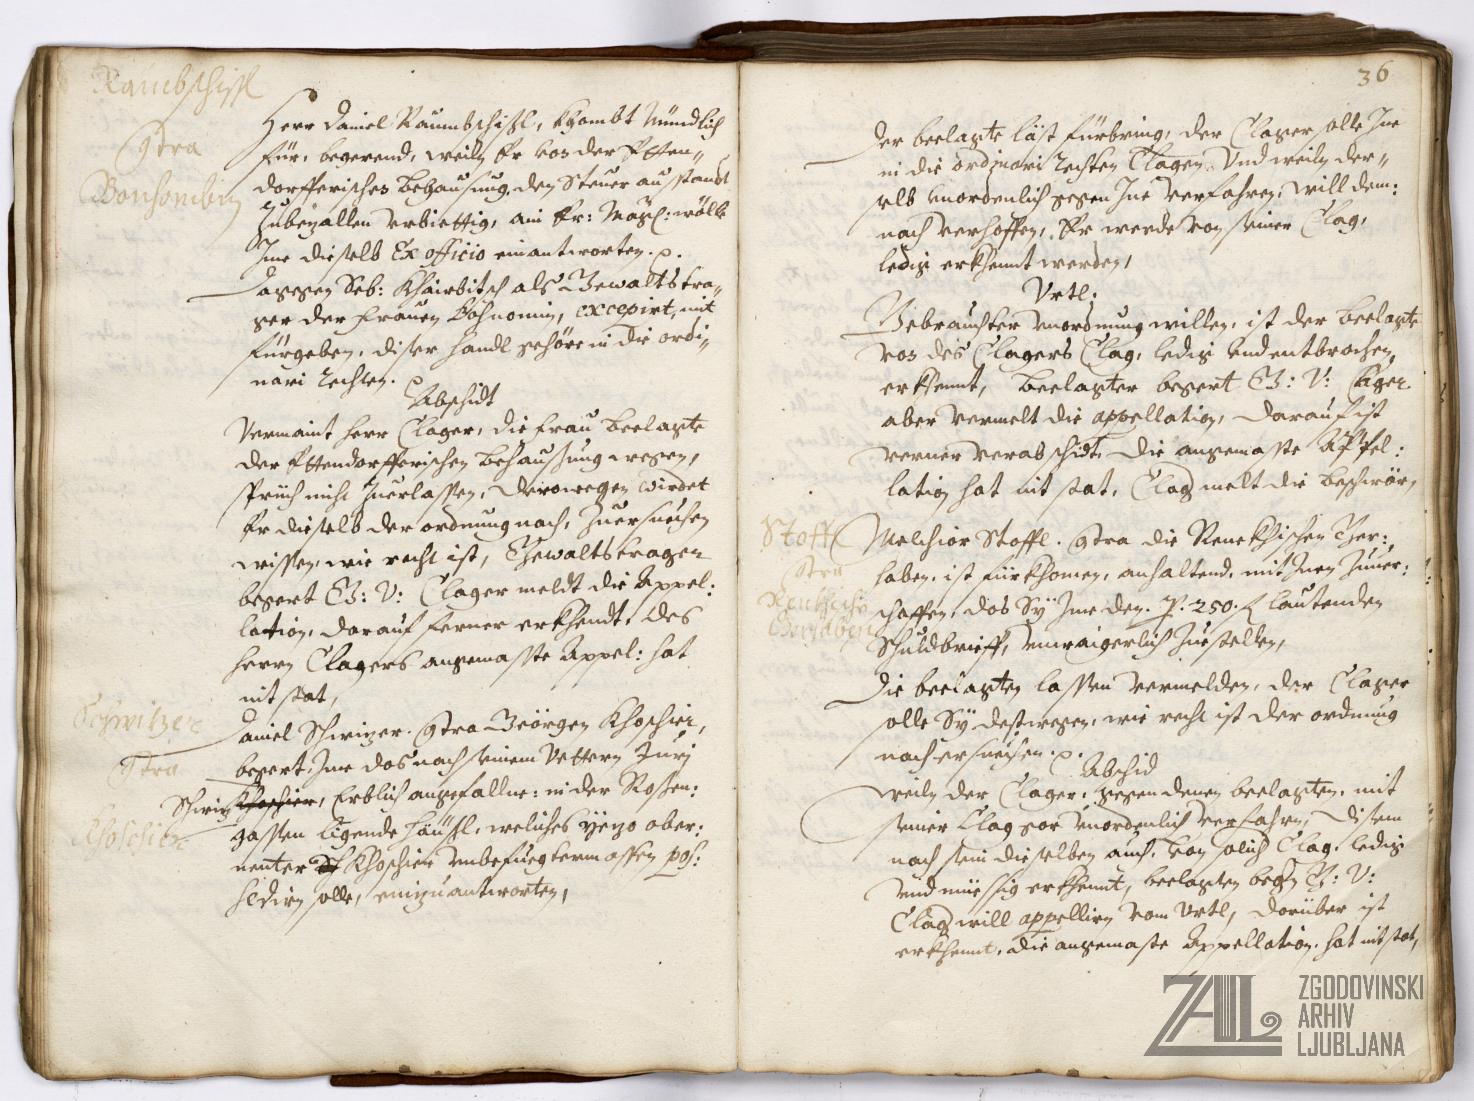 Raumbschissl
Contra
Bonhombin
Herr Daniel Raumbschissl, khombt Mündlich
für, begerend, weiln Er von der Etten„
dorfferischen behausung, den Steuer ausstandt
Zubezallen verbiettig, ain Er: Mag: wölle
Ime dieselb Ex officio einantworten. p.
Dagegen Seb: Khairbitsch als Gewaltstra„
ger der Frauen, excepirt, mit
fürgeben, diser handl gehöre in die ordi„
nari rechten. p
Abschidt
Vermaint herr Clager, die frau beclagte
der Ettendorfferischen behaussung wegen,
sprüch nicht Zuerlassen, derowegen wirdet
Er dieselb der ordnung nach, Zuersuechen
wissen, wie recht ist, Gewaltstrager
begert G: V: Clager meldt die Appel:
lation, darauf ferner erkhendt, des
herrn Clagers angemasste Appel: hat
nit stat,
Schwitzer
Contra
Khoschier
Daniel Schwizer. Contra Geörgen Khoschier,
begert, Ime das nach seinem Vettern Jurj
Schwiz Khoschier, Erblich angefallne: in der Rosen:
gassen ligende häussl, welches yezo ober:
nenter Khoschier unbefuegtermassen pos:
sedirn solle, einzuantworten,
36
Der beclagte läst fürbring, der Clager solle Ine
in die ordinari rechten Clagen, Und weiln der„
selb unordenlich gegen Ine verfahren, will dem:
nach verhoffen, Er werde von seiner Clag,
ledig erkhennt werden,
Vrtl:
Gebrauchter unordnung willen, ist der beclagte
von des Clagers Clag, ledig und entbrochen
erkhennt, beclagter begert G: V: Clager
aber vermelt die appellation, darauf ist
verner verabschidt, die angemasste Appel:
lation hat nit stat, Clag melt die beschwör,
Stoffl
Contra
Gerhaben
Melchior Stoffl. Contra die Renekhischen Ger:
haben, ist fürkhomen, anhaltend, mit Inen Zuuer:
schaffen, das Sy Ime den. P. 250. f lautenden
Schuldbrieff, unwaigerlich Zuestellen,
Die beclagten lassen vermelden, der Clager
solle Sy destwegen, wie recht ist der ordnung
nach ersuechen. p.
Abschid
Weiln der Clager, gegen denen beclagten, mit
seiner Clag gar unordenlich verfahrn, disem
nach sein dieselben auch, von solch Clag, ledig
und müessig erkhennt, beclagten begern G: V:
Clag will appellirn vom Vrtl, darüber ist
erkhennt, die angemaste Appellation, hat nit stat,
ZAL
ZGODOVINSKI
ARHIV
LJUBLJANA